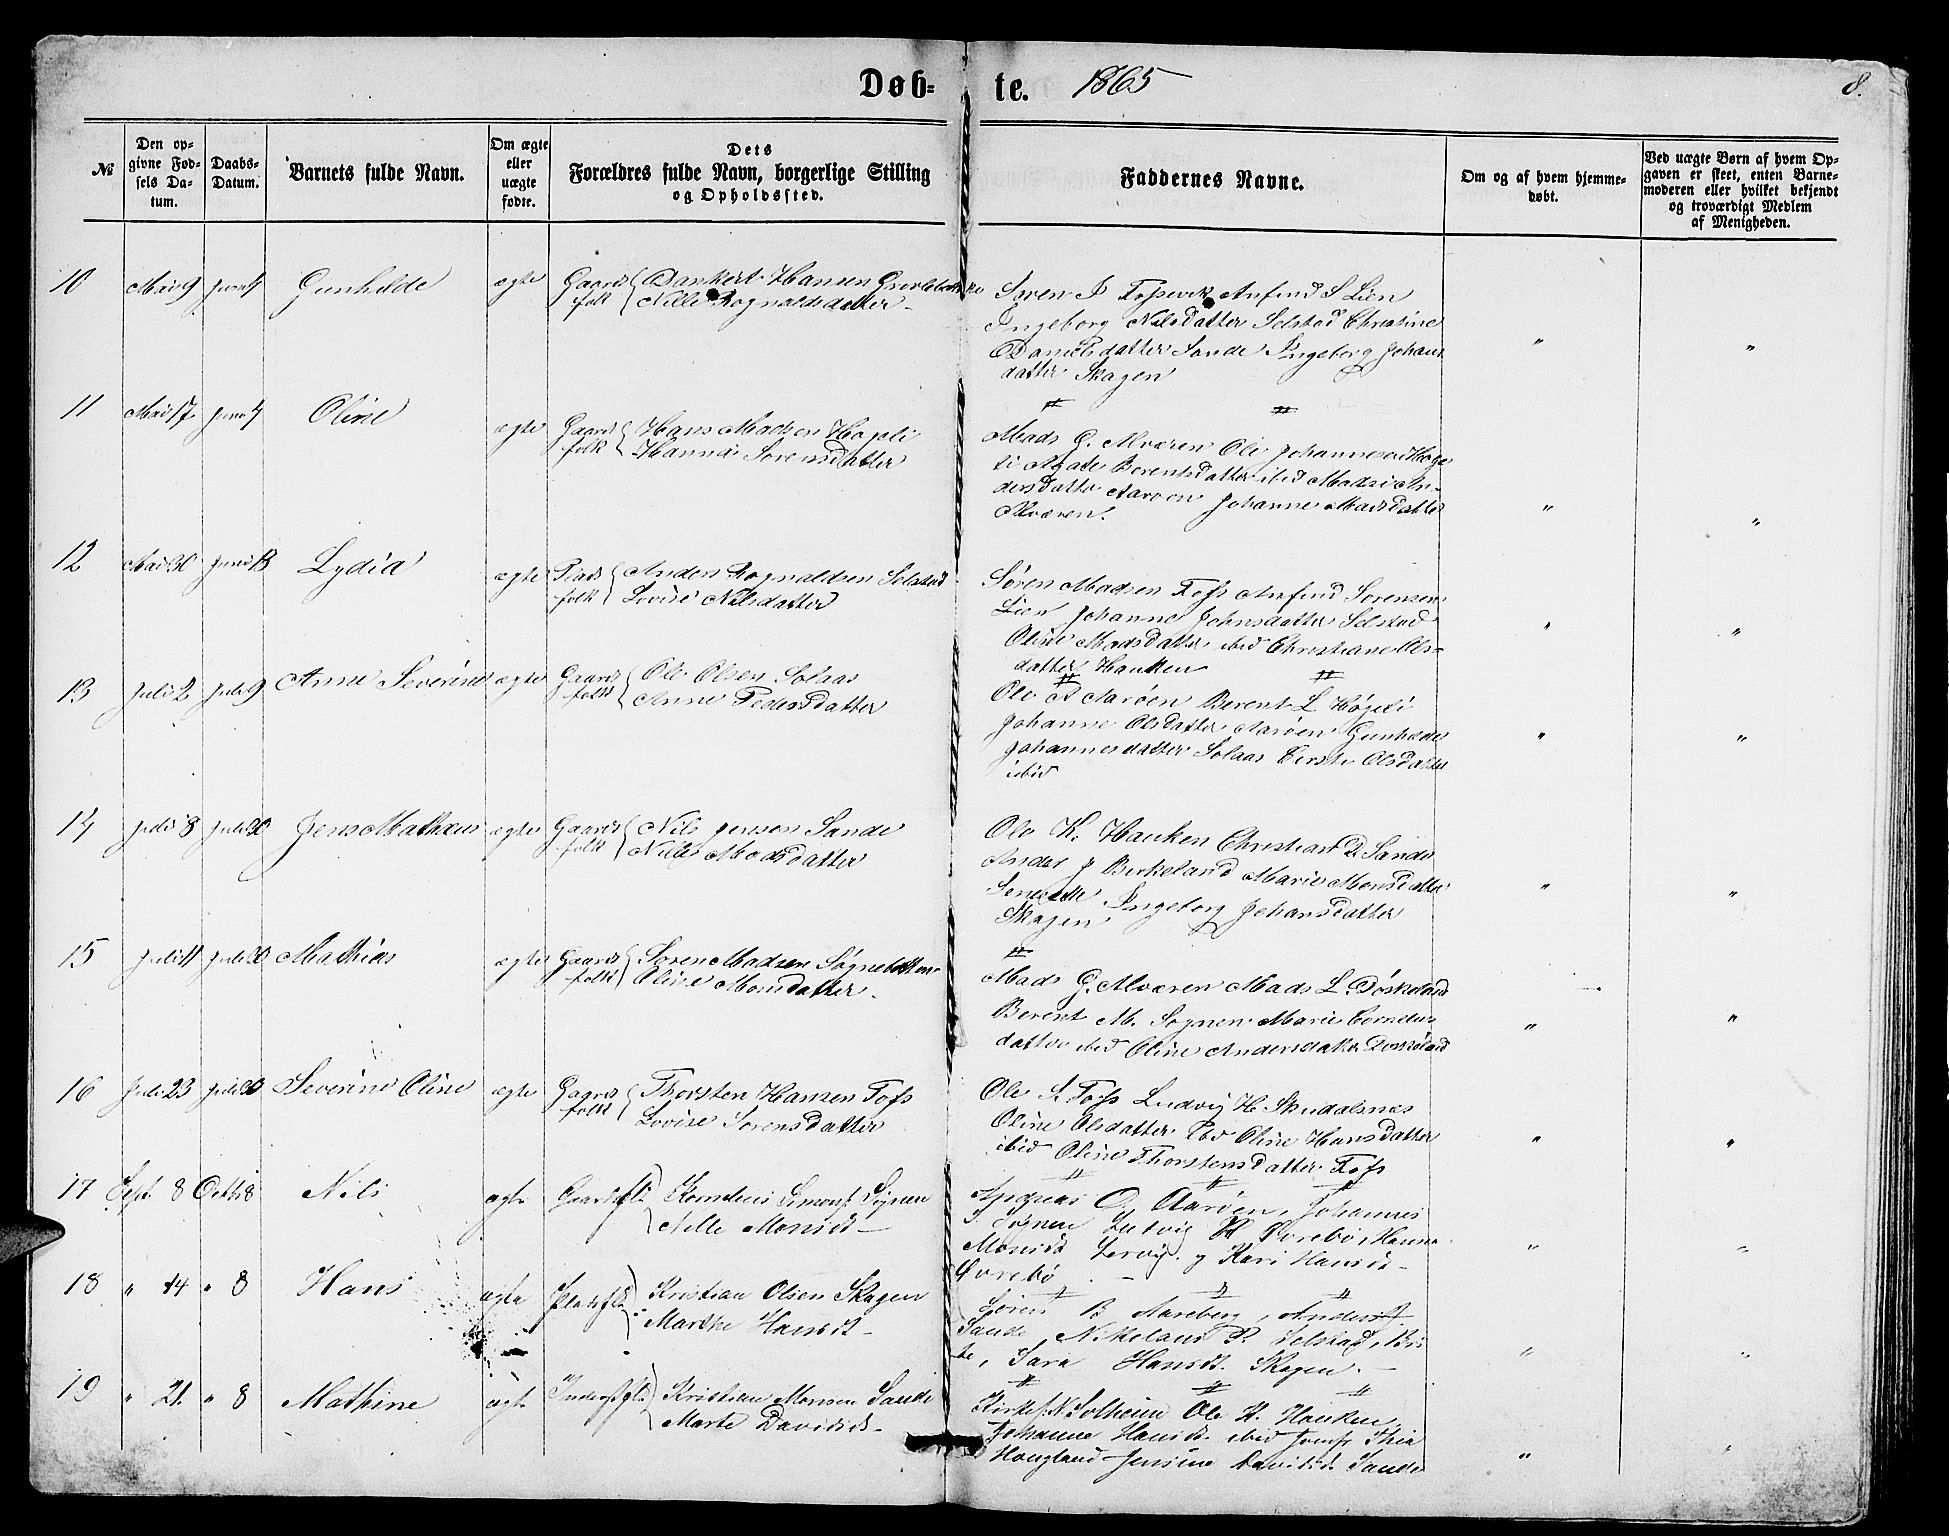 Døb- te. 1865
8.
№
Den op-
givne Fød-
sels Da-
tum.
Daabs-
Datum.
Barnets fulde Navn.
Om ægte
eller
uægte
fødte.
Dets
Forældres fulde Navn, borgerlige Stilling
og Opholdssted.
Faddernes Navne.
Om og af hvem hjemme-
døbt.
Ved uægte Børn af hvem Op-
gaven er skeet, enten Barne-
moderen eller hvilket bekjendt
og troværdigt Medlem
af Menigheden.
10 Mai 9 Juni 4 Gunhilde ægte Gaard folk Dankert Hansen
Nille Rognaldsdatter
Søren Anfind S Lien
Ingeborg Nilsdatter Selstad Christine
Danielsdatter Sande Ingeborg Johans
datter Skagen
" "
11 Mai 17 Juni 4 Oline ægte Gaard folk Hans Madsen Høgeli
Hanna Sørensdatter
Mads G. Alværen Ole Johannesen Høge
li Agate Berentsdatter ibid An-
dersdatter Aarøen Johanne Madsdatter
Alværen.
" "
12 Mai 30 Juni 13 Lydia ægte Plads folk Anders Rognaldsen Selstad
Lovise Nilsdatter
Søren Madsen Tofs Anfind Sørensen
Lien Johanne Johnsdatter Selstad
Oline Madsdatter ibid Christiane Ols-
datter Hauken
" "
13 Juli 2 Juli 9 Anne Severine ægte Gaard folk Ole Olsen Solaas
Anne Pedersdatter
Ole A Aarøen Berent L Høgeli
Johanne Olsdatter Aarøen
Johannesdatter Solaas Olsdatter
ibid
" "
14 Juli 8 Juli 30 Jens Mathæus ægte Gaard folk Nils Jensen Sande
Nille Madsdatter
Ole K. Hauken Christian D. Sande
Anders J Birkeland Marie Monsdatter
Ingeborg Johansdatter
Skagen
" "
15 Juli 11 Juli 30 Mathias ægte Gaard folk Søren Madsen
Oline Monsdatter
Mads G. Alværen Mads L. Døskeland
Berent M. Søgnen Marie Cornelius
datter ibid Oline Andersdatter Døskeland
" "
16 Juli 23 Juli 30 Severine Oline ægte Gaard folk Thorsten Hansen Tofs
Lovise Sørensdatter
Ole S. Tofs Ludvig H. Skudalsnes
Oline Olsdatter ibid Oline Hansdatter
ibid Oline Thorstensdatter Tofs
" "
17 Sept. 8 Octb 8 Nils ægte Gaardsflk. Kornelius Simons. Søgnen
Nille Monsdt
Andreas O. Aarøen, Johannes
S. Søgnen Ludvig H Øvrebø, Hanna
Monsd. Lervig og Kari Hansd.
Øvrebø
" "
18 " 14 " 8 Hans ægte Pladsflk. Kristian Olsen Skagen
Marthe Hansdt
Søren B Aareberg, Anders J.
Sande, Nikolaus R. Selstad,
Sara Hansdt. Skagen.
" "
19 " 21. " 8 Mathine ægte Kristian Monsen Sande
Marte Davidsdt
Kirkes. N. Solheim Ole K. Hauken
Johanne Hansdt. ibid Jomfr Thea
Hougland Jensine Davidsd. Sande
" "